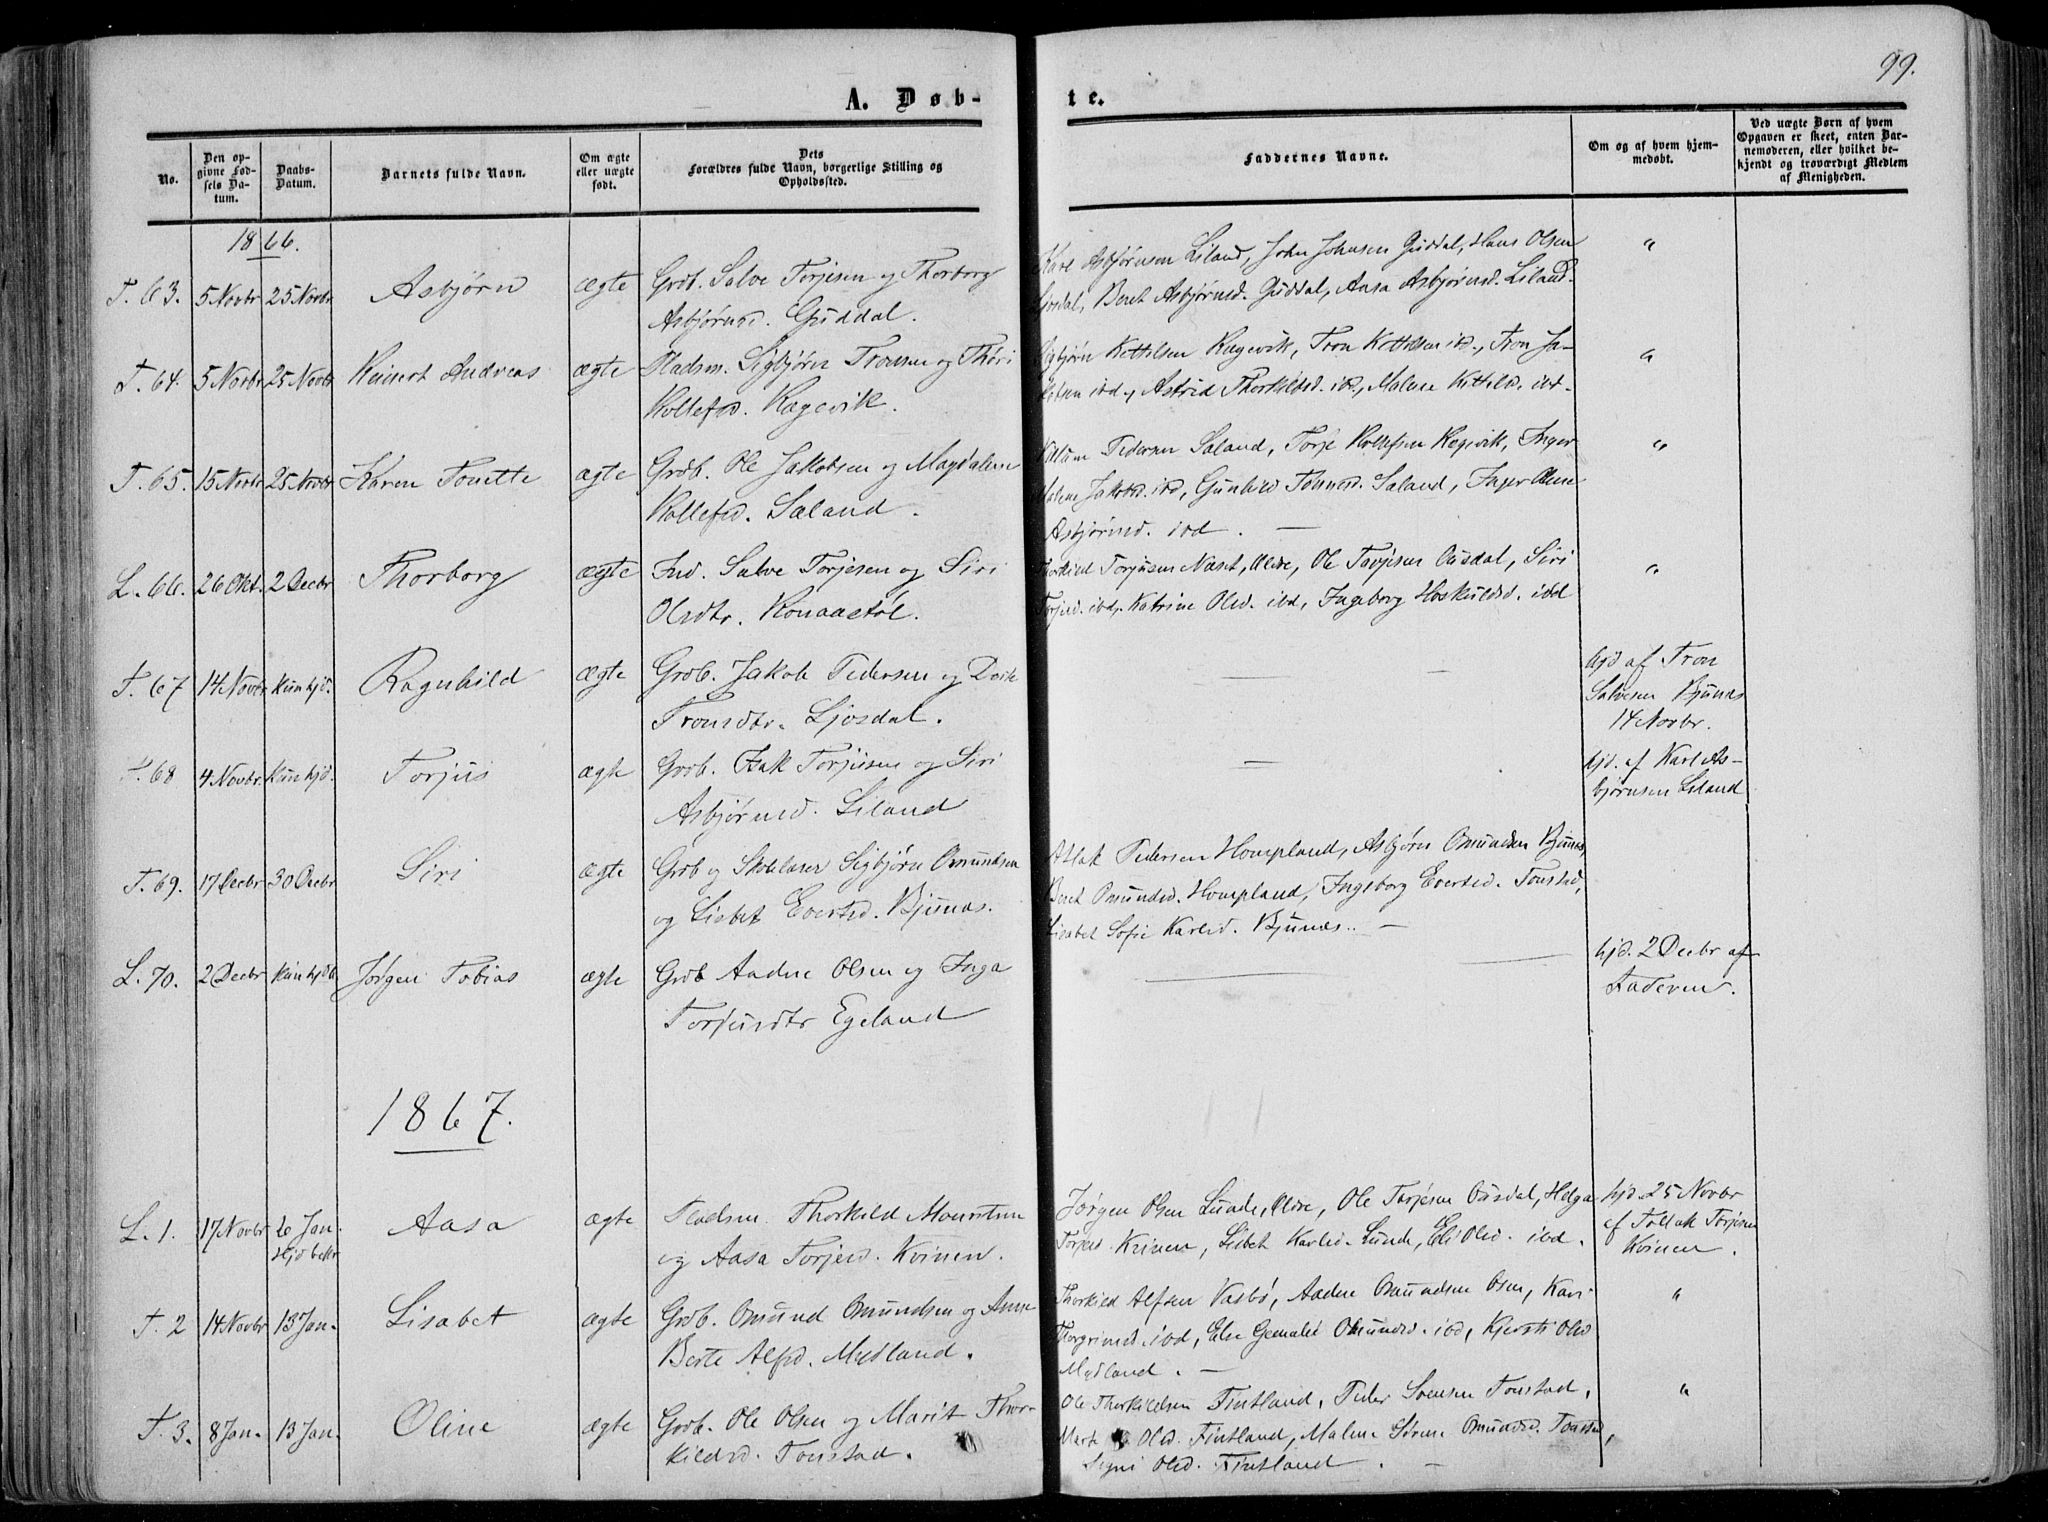 99.
A. Døb-
te.
No.
Den op-
givne Fød-
sels Da-
tum.
Daabs-
Datum.
Barnets fulde Navn.
Om ægte
eller uægte
født.
Dets
Forældres fulde Navn, borgerlige Stilling og
Opholdssted.
Faddernes Navne.
Om og af hvem hjem-
medøbt.
Ved uægte Børn af hvem
Opgaven er skeet, enten Bar-
nemoderen, eller hvilket be-
kjendt og troværdigt Medlem
af Menigheden.
1866.
T. 63. 5 Novbr 25 Novbr Asbjørn ægte Grdb. Salve Torjesen og Thorborg
Asbjørnsd. Guddal.
Asbjørnsen Liland, John Johnsen Guddal, Hans Olsen
Ljosdal, Beret Asbjørnsd. Guddal, Aasa Asbjørnsd. Liland.
"
T. 64. 5 Novbr 25 Novbr Reinert Andreas ægte Pladsm. Sigbjørn Tronsen og Thøri
Rollefsd. Kægevik.
Sigbjørn Kettilsen Kægevik, Tron Kettilsen ibd., Tron Ja-
kobsen ibd., Astrid Thorkildsd. ibd., Malene Kettilsd. ibd.
"
T. 65. 15 Novbr 25 Novbr Karen Tonette ægte Grdb. Ole Jakobsen og Magdalene
Rollefsd. Sæland.
Pedersen Sæland, Torje Rollefsen Kægevik, Inger
Malene Jakobsd. ibd, Gunhild Tønnesd. Sæland, Inger Olene
Asbjørnsd. ibd. —
"
L. 66. 26 Okt. 2 Decbr Thorborg ægte Ind. Salve Torjesen og Siri
Olsdtr. Konaastøl.
Thorkild Torjusen Næset, Øidre, Ole Torjesen Ousdal, Siri
Torjesd. ibd, Katrine Olsd. ibd, Ingeborg Hoskuldsd. ibd
"
T. 67 14 Novbr Kun hjd. Ragnhild ægte Grdb. Jakob Pedersen og
Tronsdtr. Ljosdal.
— —
hjd af Tron
Salvesen Bjunes
14 Novbr.
T. 68 4 Novbr. Kun hjd. Torjus ægte Grdb. Isak Torjusen og Siri
Asbjørnsd. Liland
—
hjd. af Karl As-
bjørnsen Liland
T. 69. 17 Decbr 30 Decbr Siri ægte Grdb og Skolelærer Sigbjørn Omundsen
og Lisbet Evertsd. Bjunes.
Aslak Pedersen Hompland, Asbjørn Omundsen Bjunes,
Beret Omundsd. Hompland, Ingeborg Evertsd. Tonstad,
Lisabet Sofie Karlsd. Bjunes. —
L. 70. 2 Decbr Kun hjdb Jørgen Tobias ægte Grdb Aadne Olsen og Inga
Torjusdtr Egeland
— —
hjd. 2 Decbr af
Faderen.
1867.
L. 1. 17 Novbr 6 Jan. Aasa ægte Pladsm. Thorkild Mouritsen
Hjd bekr. og Aasa Torjesd. Kvinen.
Jørgen Olsen Lunde, Øidre, Ole Torjesen Ousdal, Helga
Torjesd. Kvinen, Lisbet Karlsd. Lunde, Eli Olsd. ibd.
hjd. 25 Novbr
af Tollak Torjesen
Kvinen.
T. 2 14 Novbr 13 Jan. Lisabet ægte Grdb. Omund Omundsen og Anne
Berte Alfsd. Mydland.
Thorkild Alfsen Vasbø, Aadne Omundsen Osen, Kari
Thorgrimsd. ibd, Else Gemalie Omundsd. ibd, Kjersti Olsd
Mydland. —
"
T. 3. 8 Jan. 13 Jan. Oline ægte Grdb. Ole Olsen og Marit Thor-
kildsd. Tonstad.
Ole Thorkildsen Fintland, Peder Svensen Tonstad,
Marte Olsd. Fintland, Malene Sørine Omundsd. Tonstad,
Signi Olsd. Fintland. —
"